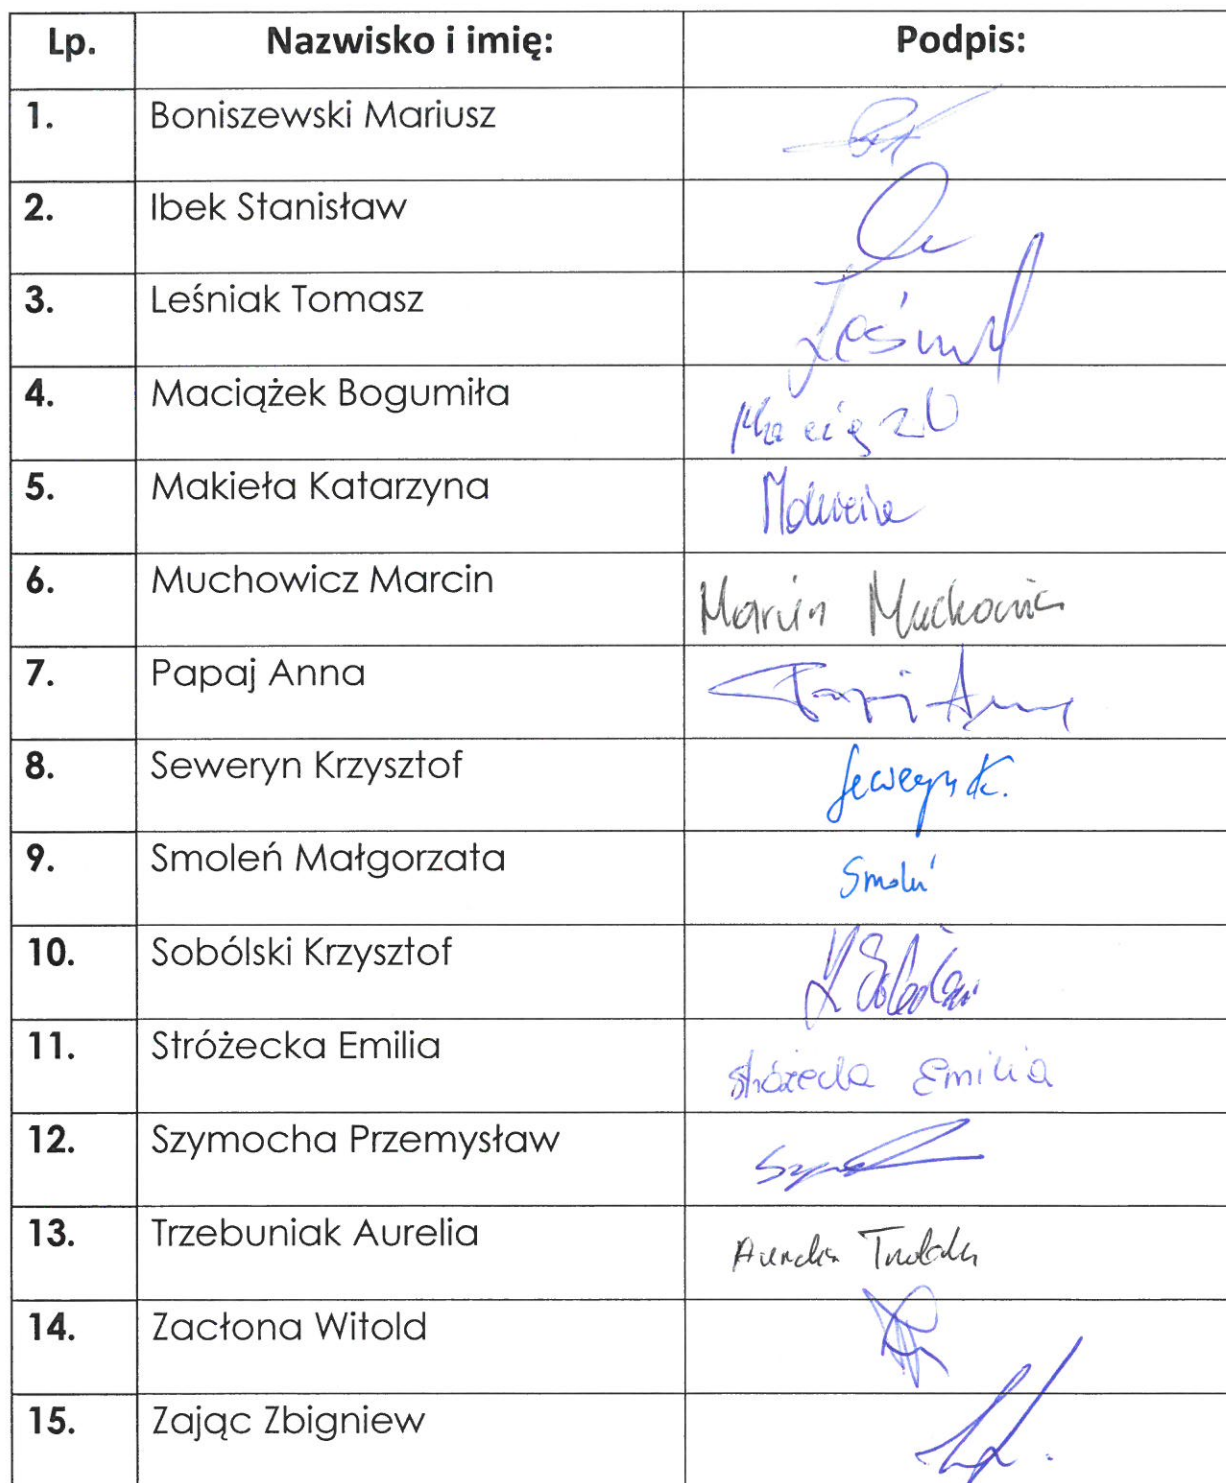 Lp. Nazwisko i imię: Podpis:
1. Boniszewski Mariusz
2. Ibek Stanisław
3. Leśniak Tomasz
4. Maciążek Bogumiła
5. Makieła Katarzyna
6. Muchowicz Marcin Marcin Muchowicz
7. Papaj Anna
8. Seweryn Krzysztof Seweryn K.
9. Smoleń Małgorzata Smoleń
10. Sobólski Krzysztof
11. Stróżecka Emilia Stróżecka Emilia
12. Szymocha Przemysław
13. Trzebuniak Aurelia
14. Zacłona Witold
15. Zając Zbigniew